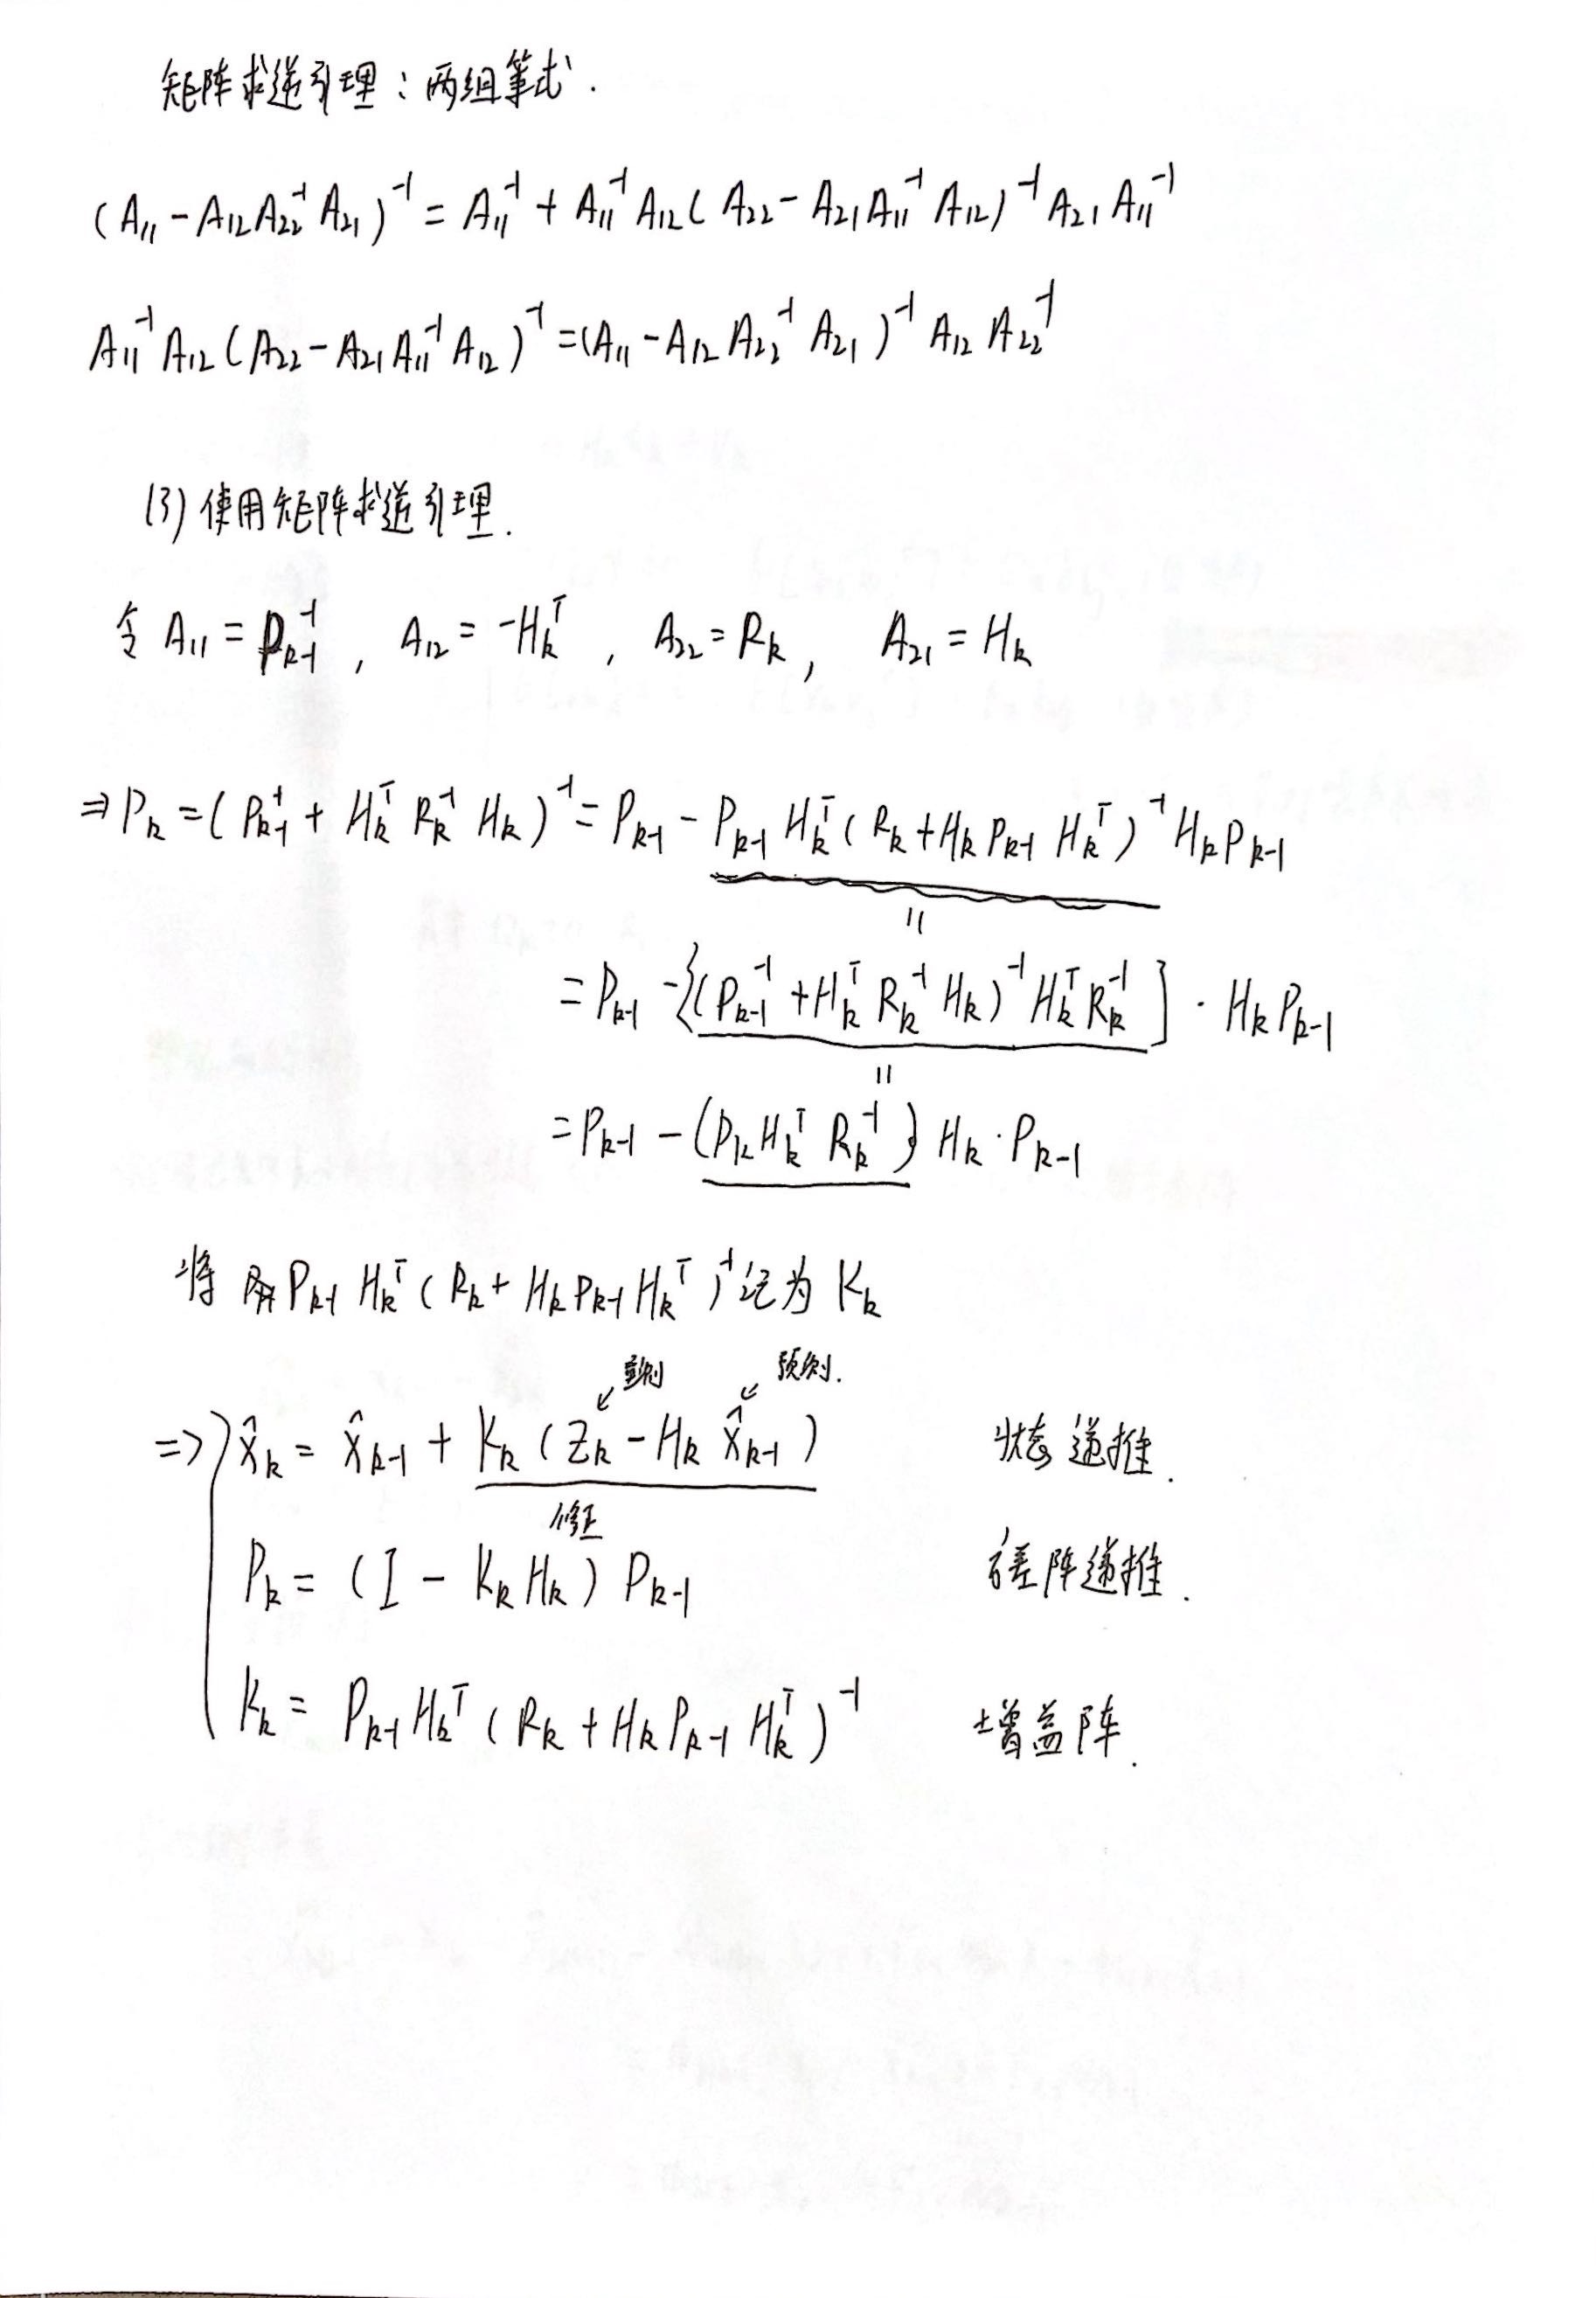 矩阵求逆引理：两组等式.
(A₁₁ - A₁₂A₂₂⁻¹A₂₁)⁻¹ = A₁₁⁻¹ + A₁₁⁻¹A₁₂(A₂₂ - A₂₁A₁₁⁻¹A₁₂)⁻¹A₂₁A₁₁⁻¹
A₁₁⁻¹A₁₂(A₂₂ - A₂₁A₁₁⁻¹A₁₂)⁻¹ = (A₁₁ - A₁₂A₂₂⁻¹A₂₁)⁻¹A₁₂A₂₂⁻¹
(3) 使用矩阵求逆引理.
令 A₁₁ = Pₖ₋₁⁻¹ , A₁₂ = -Hₖᵀ , A₂₂ = Rₖ, A₂₁ = Hₖ
⇒ Pₖ = (Pₖ₋₁⁻¹ + HₖᵀRₖ⁻¹Hₖ)⁻¹ = Pₖ₋₁ - Pₖ₋₁Hₖᵀ(Rₖ + HₖPₖ₋₁Hₖᵀ)⁻¹HₖPₖ₋₁
=
= Pₖ₋₁ - {(Pₖ₋₁⁻¹ + HₖᵀRₖ⁻¹Hₖ)⁻¹HₖᵀRₖ⁻¹] · HₖPₖ₋₁
=
= Pₖ₋₁ - (PₖHₖᵀRₖ⁻¹)Hₖ · Pₖ₋₁
将 Pₖ₋₁Hₖᵀ(Rₖ + HₖPₖ₋₁Hₖᵀ)⁻¹记为 Kₖ
量测 预测.
⇒ x̂ₖ = x̂ₖ₋₁ + Kₖ(Zₖ - Hₖx̂ₖ₋₁) 状态递推.
修正
Pₖ = (I - KₖHₖ)Pₖ₋₁ 误差阵递推.
Kₖ = Pₖ₋₁Hₖᵀ(Rₖ + HₖPₖ₋₁Hₖᵀ)⁻¹ 增益阵.